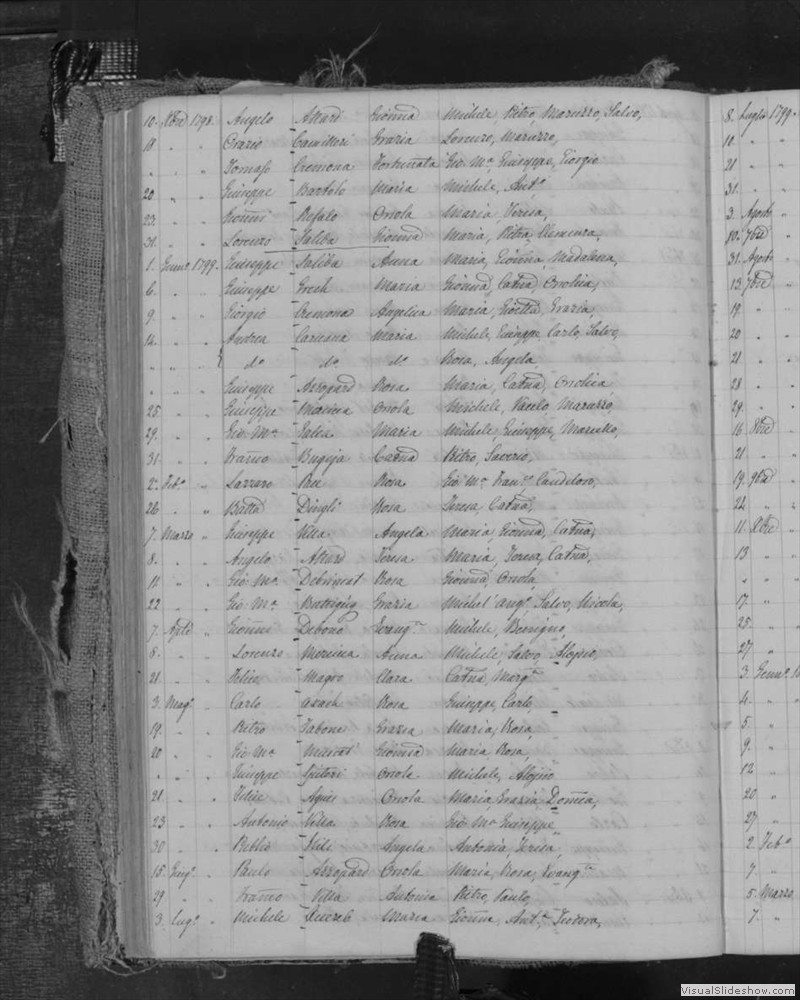 10. Xbre 1798. Angelo Attard Gioanna Michele, Pietro, Maruzzo, Salvo,
18 " " Orazio Camilleri Grazia Lorenzo, Maruzzo,
" " " Tomaso Cremona Fortunata Gio Ma. Giuseppe, Giorgio
20 " " Giuseppe Bartolo Maria Michele, Anto.
23. " " Gioanni Refalo Orsola Maria Teresa,
31. " " Lorenzo Saliba Gioanna Maria, Pietra, Clemenza,
1. Genno. 1799. Giuseppe Saliba Anna Maria, Gioanna, Madalena,
6. " " Giuseppe Grech Maria Gioanna, Catna, Orsolica,
9. " " Giorgio Cremona Angelica Maria, Grazia,
14. " " Andrea Caruana Maria Michele, Giuseppe, Carlo, Salvo,
" " " do. do. do. Rosa, Angela
" " " Giuseppe Azzopard Rosa Maria, Catna, Orsolica
25. " " Giuseppe Orsola Michele, Paolo, Maruzzo,
29. " " Gio. Ma. Maria Michele, Giuseppe, Marcello,
31 " " Franco Bugeja Catna Pietro, Saverio,
2. Febo. " Lazzaro Rosa Gio Ma. Franco. Candeloro,
26 " " Batta Dingli Rosa Teresa, Catna,
7. Marzo " Giuseppe Vella Angela Maria, Gioanna, Catna,
8. " " Angelo Attard Teresa Maria, Teresa, Catna,
11 " " Gio. Ma. Debrincat Rosa Gioanna, Orsola
22 " " Gio. Ma. Buttigieg Grazia Michel'ango. Salvo, Nicola,
7. Aple " Gioanni Debono Evanga. Michele, Benigno,
8. " " Lorenzo Anna Michele, Salvo, Aloysio,
21 " " Felice Magro Clara Catna, Marga
3. Mago. " Carlo Rosa Giuseppe, Carlo,
19. " " Pietro Tabone Grazia Maria, Rosa,
20 " " Gio. Ma. Gioanna Maria Rosa,
" " " Giuseppe Spiteri Orsola Michele, Aloysio
21. " " Felice Agius Orsola Maria, Grazia, Domca,
23 " " Antonio Vella Rosa Gio. Ma. Giuseppe,
30 " " Publio Xili Angela Antonia, Teresa,
15. Giugo. " Paulo Azzopard Orsola Maria, Rosa, Evanga.
29 " " Franco Vella Antonia Pietro, Paulo,
3. Lugo. " Michele Maria Gioanna, Anta. Teodora,
8. Luglio 1799.
10. " "
21 " "
31. " "
3. Agosto
30. 7bre
31. Agosto
13. 7bre
19. "
20. "
21 "
28. "
29. "
16 8bre
21 "
19. 9bre
22 "
11. Xbre
13 "
" "
17. "
25. "
27 "
3. Genno.
4. "
5. "
9. "
12 "
20 "
27 "
2. Febo.
7. "
5. Marzo
7. "
VisualSlideshow.com